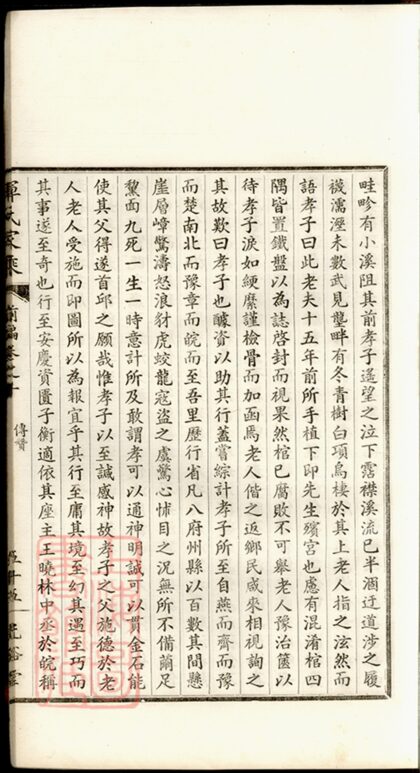 畦畛有小溪阻其前孝子遙望之泣下霑襟溪流已半涸迂道涉之履
襪濡溼未數武見壟畔有冬青樹白項烏棲於其上老人指之泫然而
語孝子曰此老夫十五年前所手植下即先生殯宮也慮有混淆棺四
隅皆置鐵盤以為誌啓封而視果然棺已腐敗不可舉老人豫治篋以
待孝子淚如綆縻謹檢骨而加函焉老人偕之返鄉民咸來相視詢之
其故歎曰孝子也醵資以助其行蓋嘗綜計孝子所至自燕而齊而豫
而楚南北而豫章而皖而至吾里歷行省凡八府州縣以百數其間懸
崖層嶂驚濤怒浪豺虎蛟龍寇盜之虞驚心怵目之況無所不備繭足
黧面九死一生一時意計所及敢謂孝可以通神明誠可以貫金石能
使其父得遂首邱之願哉惟孝子以至誠感神故孝子之父施德於老
人老人受施而即圖所以為報宜乎其行至庸其境至幻其遇至巧而
其事遂至奇也行至安慶資匱子衡適依其座主王曉林中丞於皖稱
家乘
前編卷之十
傳贊